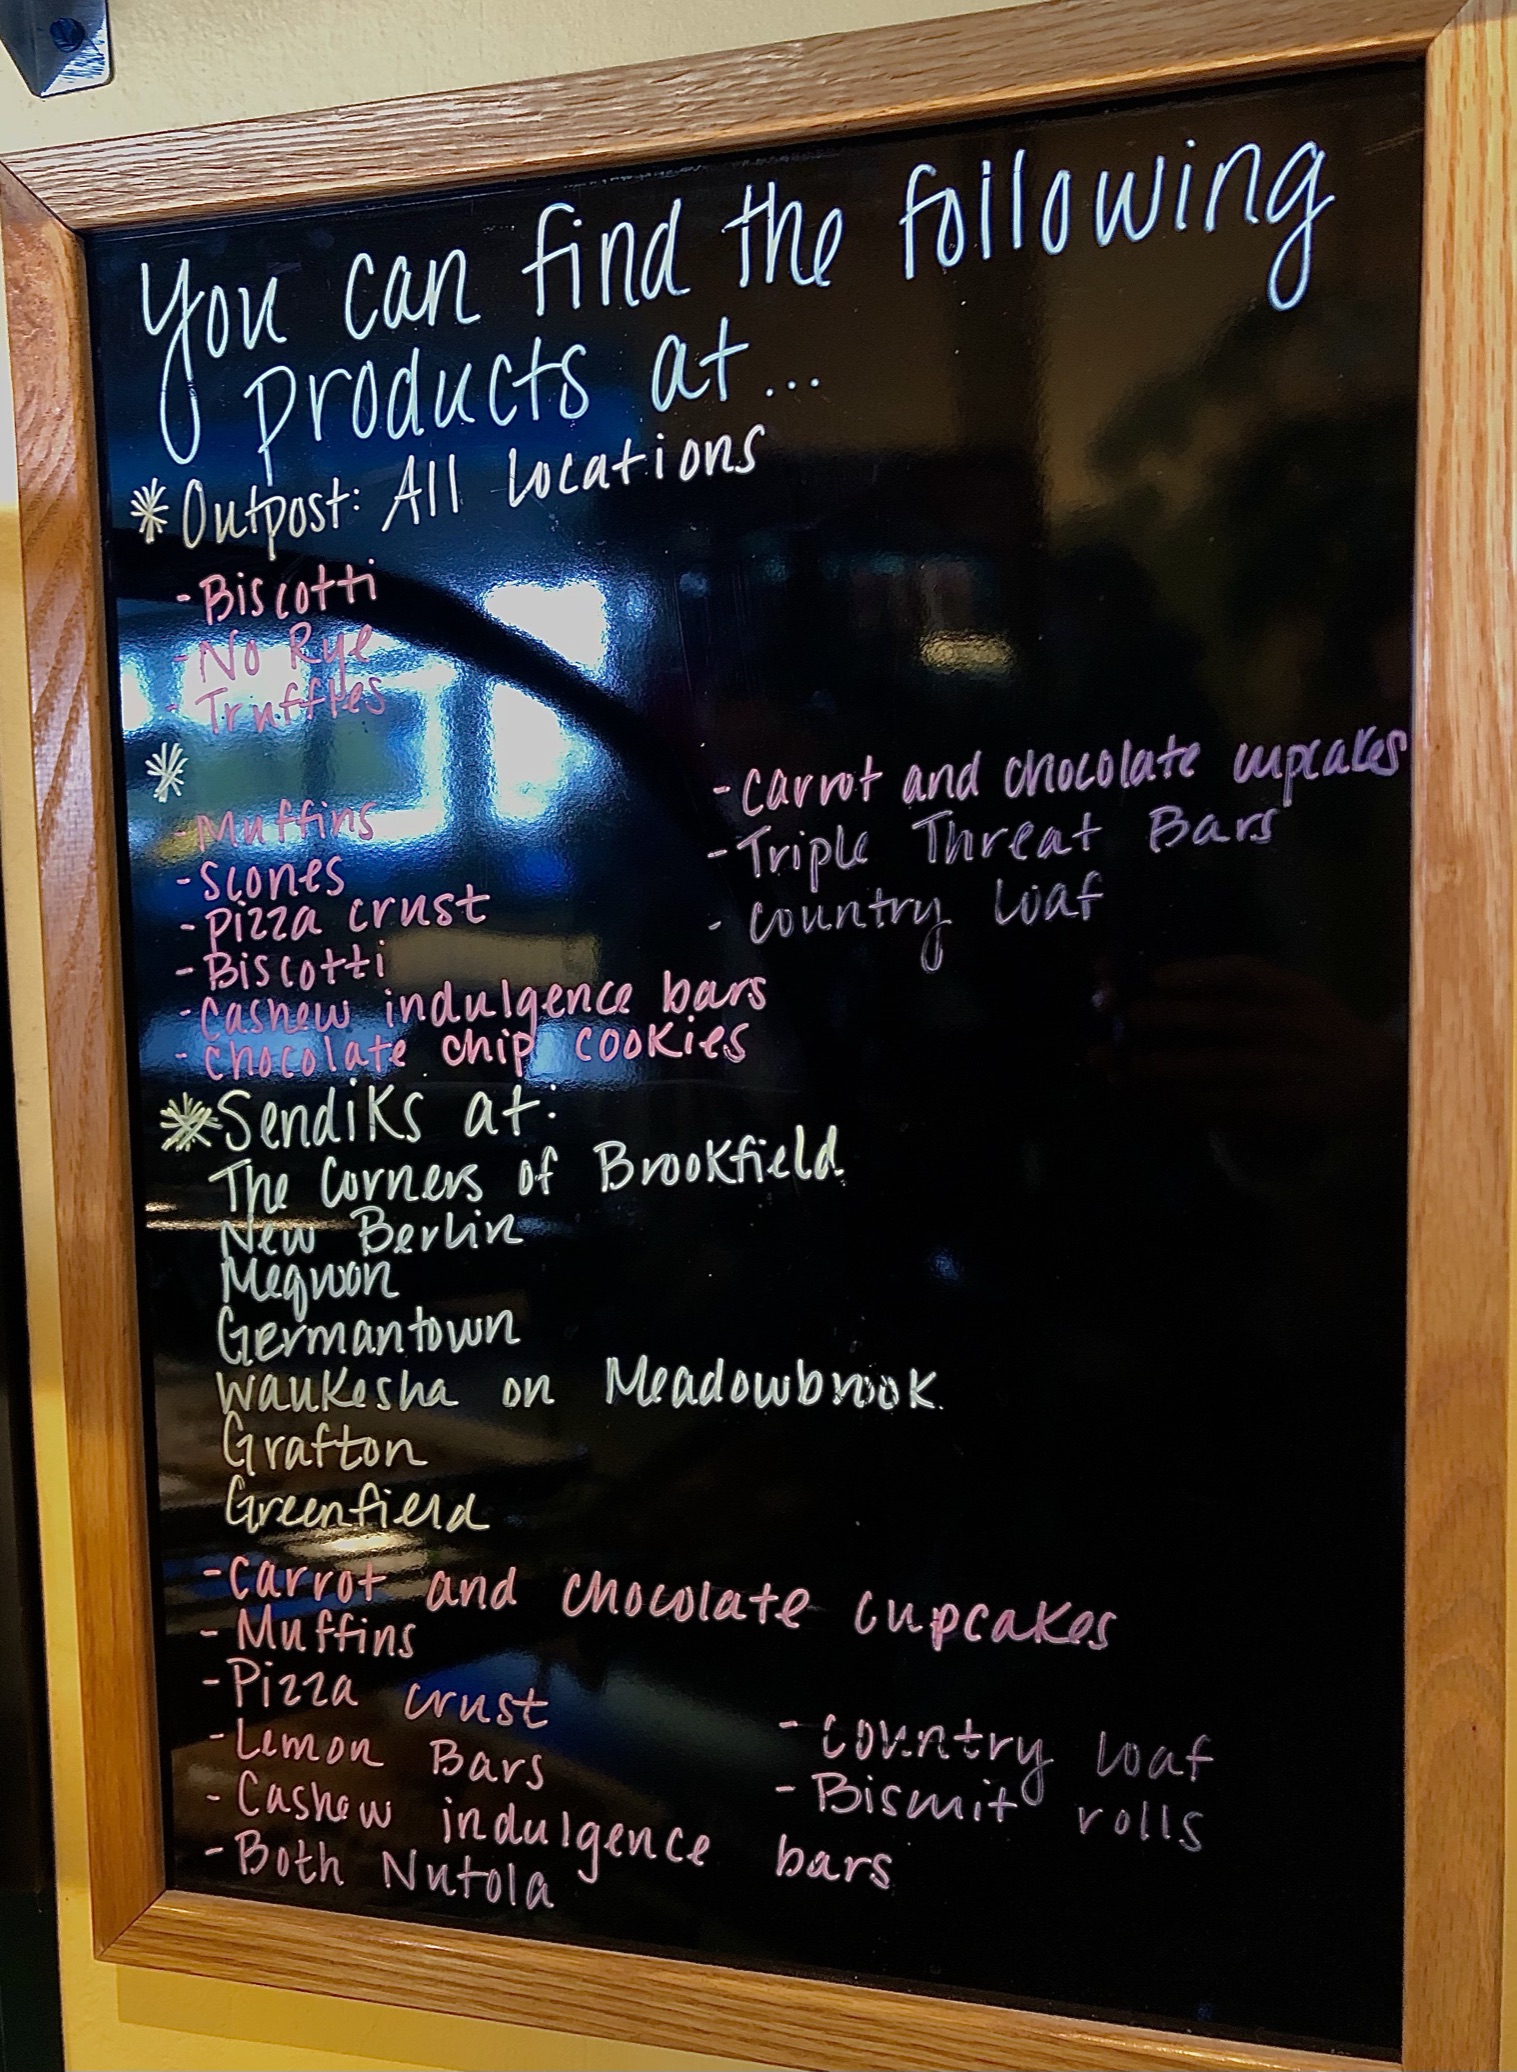 You can find the following
products at...
* Outpost: All Locations
- Biscotti
- No Rye
- Truffles
*
- Muffins
- Scones
- Pizza crust
- Biscotti
- Cashew indulgence bars
- Chocolate chip cookies
- Carrot and chocolate cupcakes
- Triple Threat Bars
- Country Loaf
* Sendiks at:
The Corners of Brookfield
New Berlin
Meqwon
Germantown
Waukesha on Meadowbrook
Grafton
Greenfield
- Carrot and chocolate cupcakes
- Muffins
- Pizza crust
- Lemon Bars
- Cashew indulgence bars
- Both Nutola
- Country Loaf
- Biscuit rolls